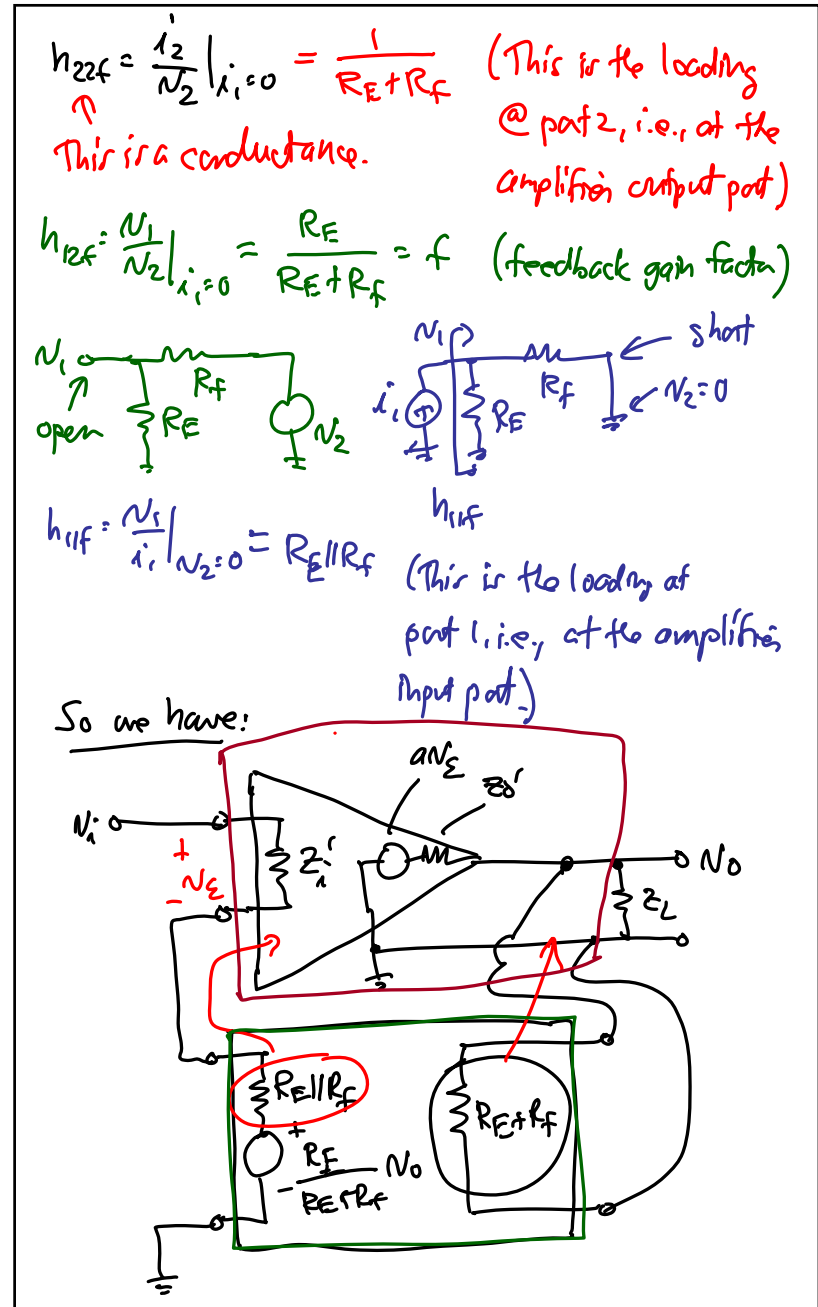 h22f = i2/v2 |i1=0 = 1/(RE+Rf) (This is the loading
@ port 2, i.e., at the
amplifier output port)
↑
This is a conductance.
h12f = v1/v2 |i1=0 = RE/(RE+Rf) = f (feedback gain factor)
v1
Rf
open
RE
v2
v1
short
Rf
i1
RE
v2=0
h11f
h11f = v1/i1 |v2=0 = RE||Rf (This is the loading at
port 1, i.e., at the amplifier
input port.)
So we have:
avε
zo'
vi
+
vε
-
Zi'
vo
ZL
RE||Rf
+
RE/(RE+Rf) vo
-
RE+Rf